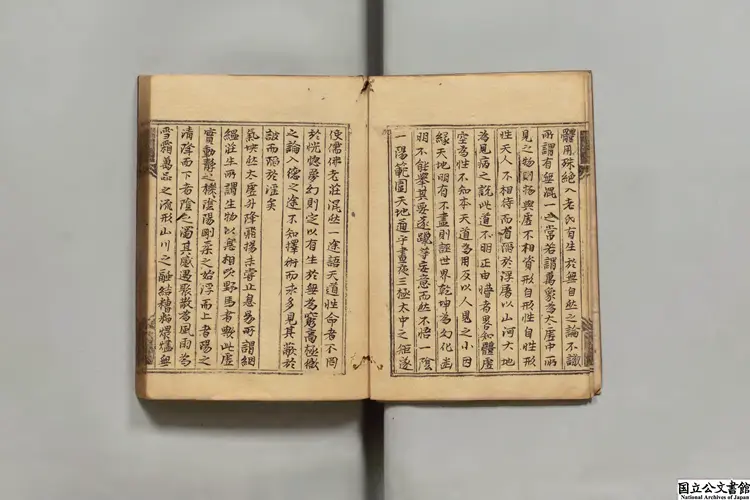 體用殊絕入老氏有生於無自然之論不識
所謂有無混一之常若謂萬象為太虛中所
見之物則物與虛不相資形自形性自性形
性天人不相待而有陷於浮屠以山河大地
為見病之說此道不明正由懵者畧知體虛
空為性不知本天道為用反以人見之小因
緣天地明有不盡則誣世界乾坤為幻化幽
明不能舉其要遂躐等妄意而然不悟一陰
一陽範圍天地通乎晝夜三極太中之矩遂
使儒佛老莊混然一途語天道性命者不罔
於恍惚夢幻則定以有生於無為窮高極微
之論入德之途不知擇術而求多見其蔽於
詖而陷於淫矣
氣坱然太虛升降飛揚未嘗止息易所謂絪
縕莊生所謂生物以息相吹野馬者歟此虛
實動靜之機陰陽剛柔之始浮而上者陽之
清降而下者陰之濁其感遇聚散為風雨為
雪霜萬品之流形山川之融結糟粕煨燼無
国立公文書館
National Archives of Japan